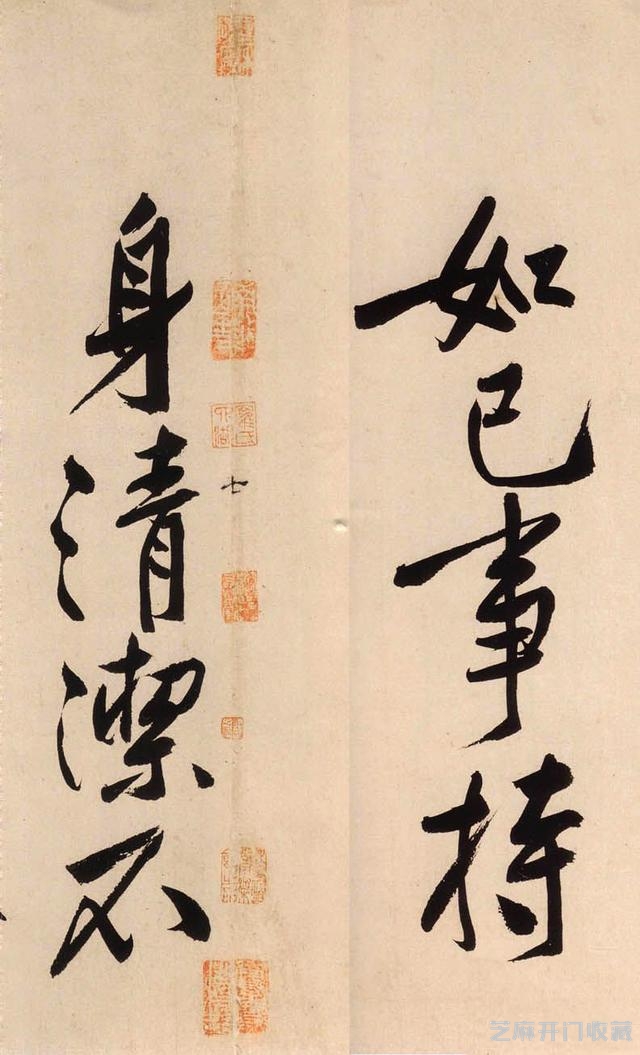 如已事持
身清潔不
七
芝麻开门收藏